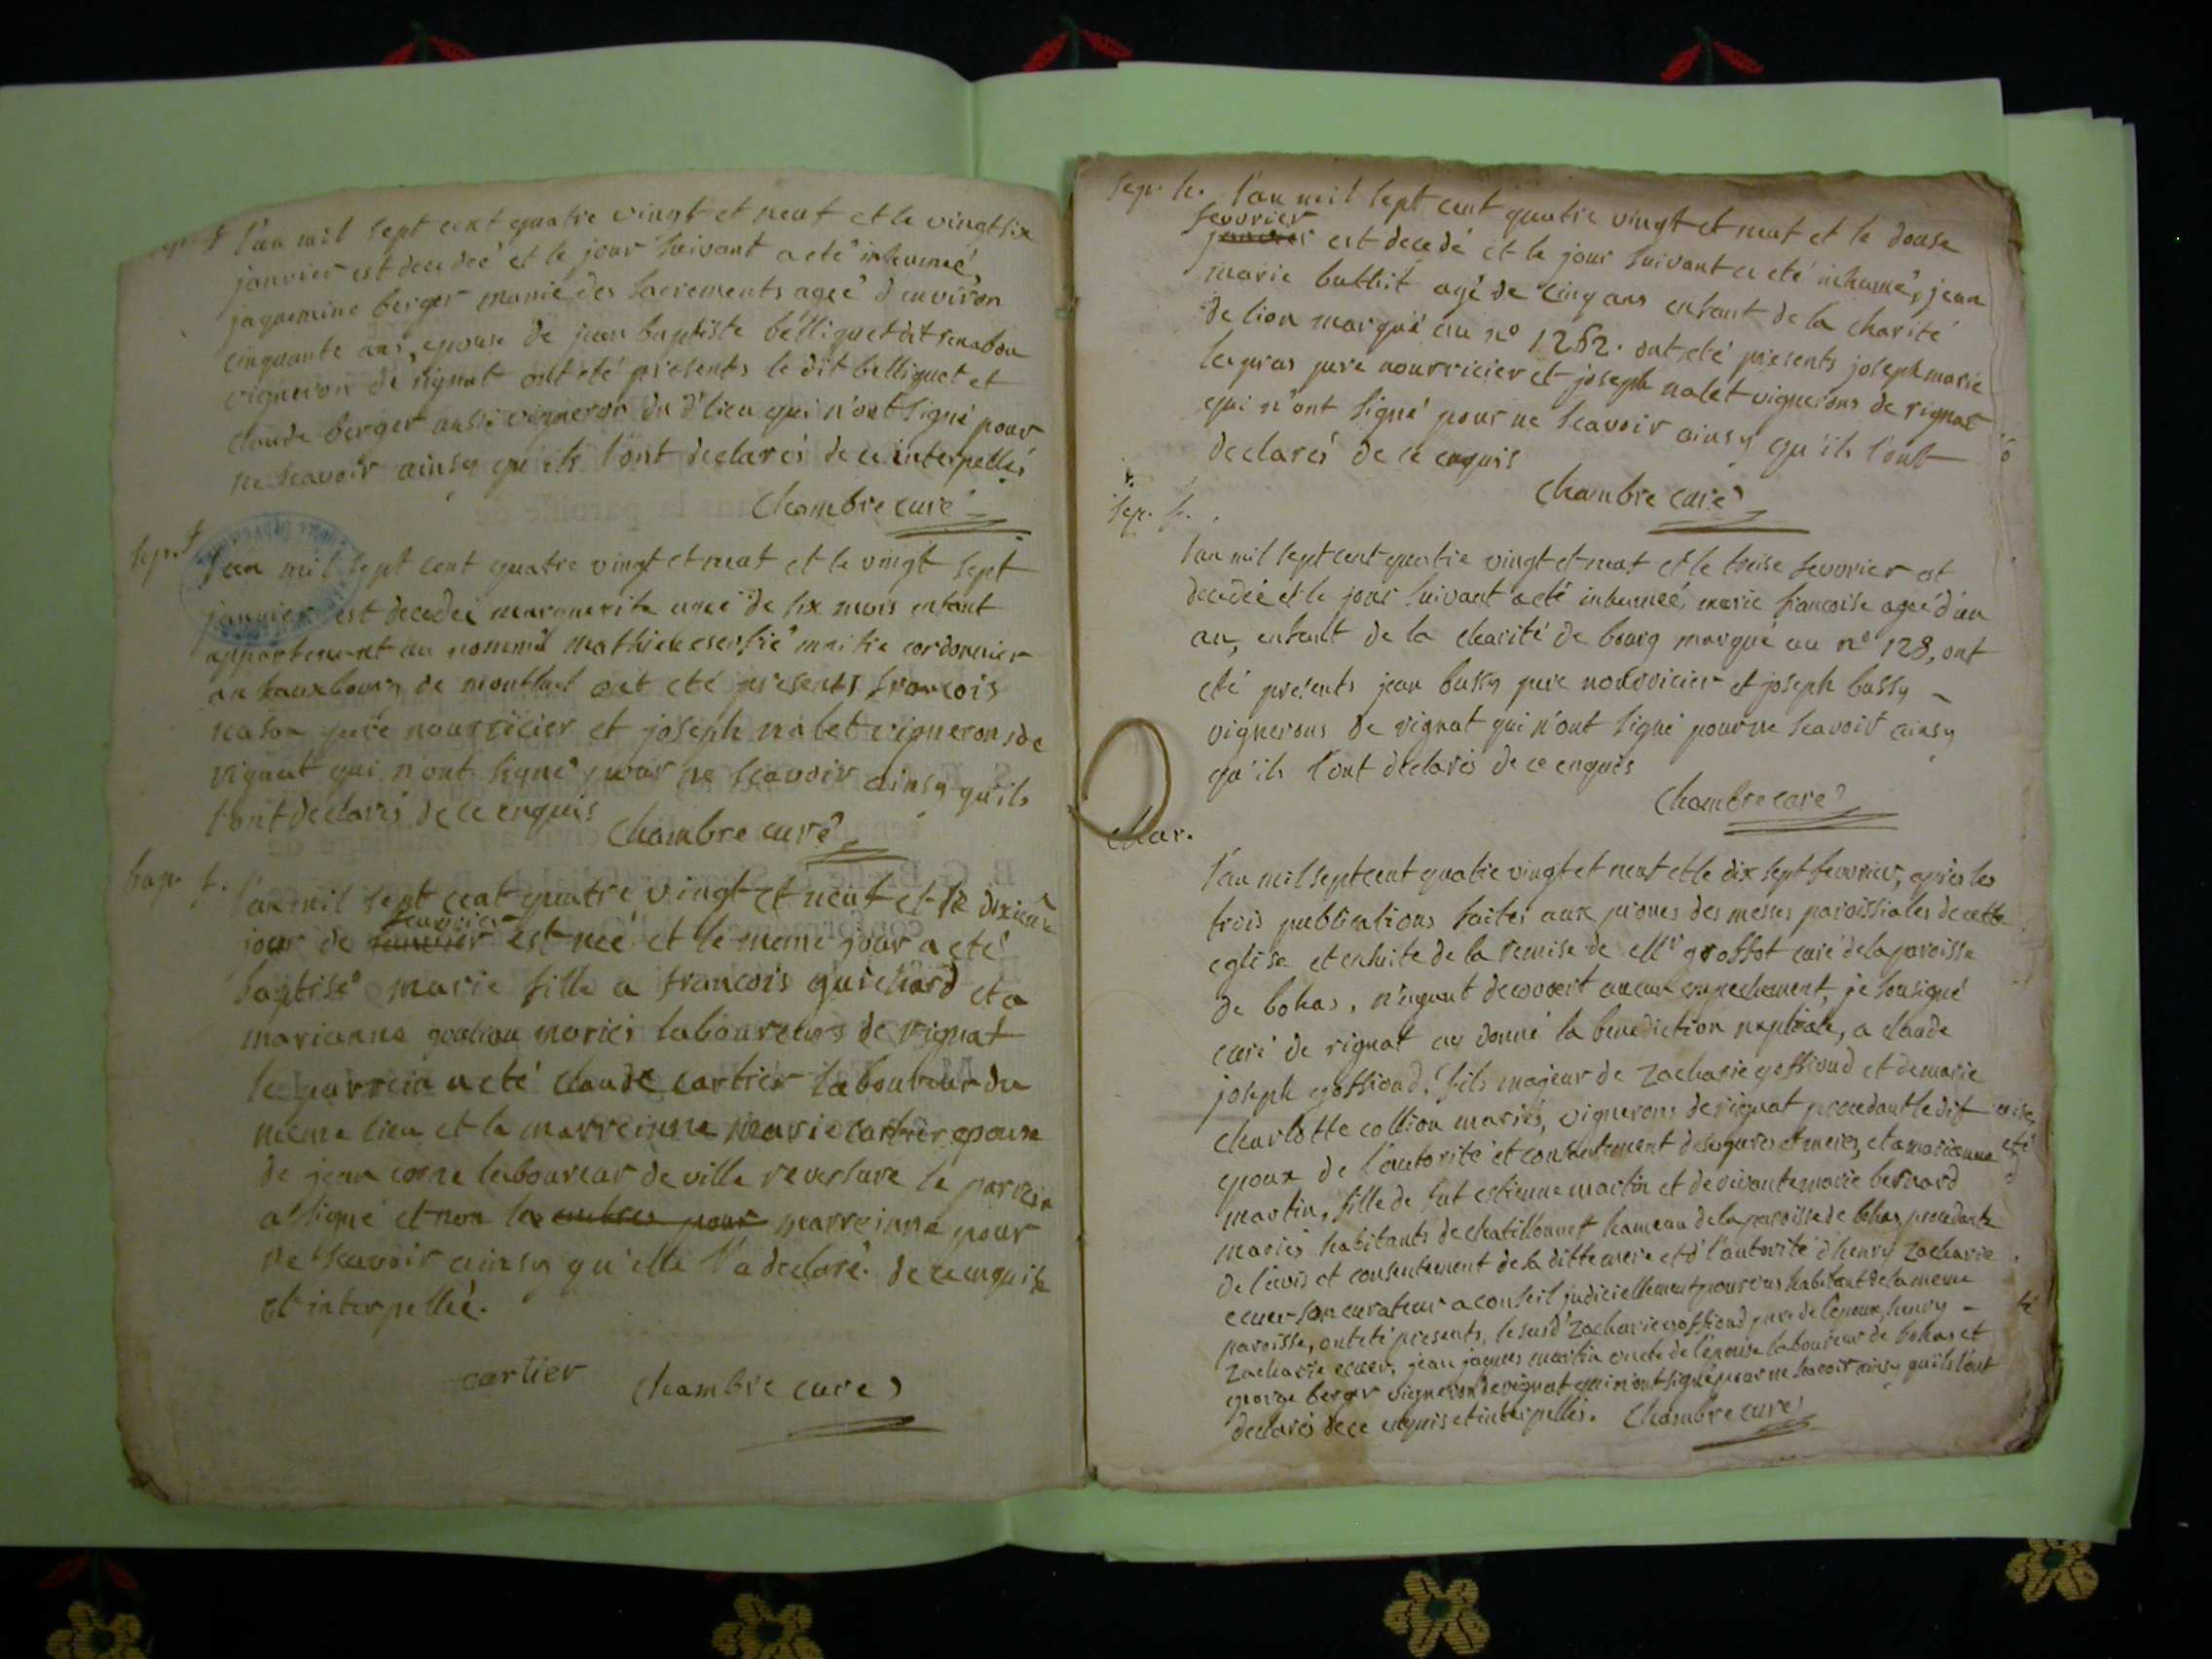 sep. f
l'an mil sept cent quatre vingt et neuf et le vingt six
janvier est decedeé et le jour suivant a eté inhumeé,
jaquemine berger munie des sacrements ageé d'environ
cinquante ans, epouse de jean baptiste belliquet dit
vigneron de rignat ont eté presents le dit belliquet et
claude berger aussi vigneron du d' lieu qui n'ont signé pour
ne scavoir ainsy qu'ils l'ont declarés de ce interpellés
Chambre curé
sep. f
l'an mil sept cent quatre vingt et neuf et le vingt sept
janvier est decedeé marguerite ageé de six mois enfant
appartenant au nommé mathieu maitre cordonnier
au fauxbourg de montluel ont eté presents francois
nason pere nourricier et joseph nalet vignerons de
rignat qui n'ont signé pour ne scavoir ainsy qu'ils
l'ont declarés de ce enquis
Chambre curé
bap. f.
l'an mil sept cent quatre vingt et neuf et le dixieme
fevrier
jour de janvier est neé et le meme jour a eté
baptiseé marie fille a francois guichard et a
marianne goulion mariés laboureurs de rignat
le parrein a eté claude cartier laboureur du
meme lieu et la marreinne marie cartier epouse
de jean corne laboureur de ville reversure le parrein
a signé et non les autres pour marreinne pour
ne scavoir ainsy qu'elle l'a declaré de ce enquise
et interpelleé.
cartier Chambre curé
sep. h. l'an mil sept cent quatre vingt et neuf et le douse
fevvrier
janvier est decedé et le jour suivant a eté inhumé, jean
marie buttit agé de cinq ans enfant de la charité
de lion marqué au n° 1262. ont eté presents joseph marie
legras pere nourricier et joseph nalet vignerons de rignat
qui n'ont signé pour ne scavoir ainsy qu'ils l'ont
declarés de ce enquis
Chambre curé
sep. f.
l'an mil sept cent quatre vingt et neuf et le treise fevvrier est
decedeé et le jour suivant a eté inhumeé, marie francoise ageé d'un
an, enfant de la charité de bourg marqué au n° 128, ont
eté presents jean bussy pere nourricier et joseph bussy
vignerons de rignat qui n'ont signé pour ne scavoir ainsy
qu'ils l'ont declarés de ce enquis
Chambre curé
Mar.
l'an mil sept cent quatre vingt et neuf et le dix sept fevvrier, après les
trois publications faites aux prones des messes paroissiales de cette
eglise et ensuite de la remise de Mr grossot curé de la paroisse
de bohas, n'ayant decouvert aucun empechement, je sousigné
curé de rignat ay donné la benediction nuptiale, a claude
joseph goffioud, fils majeur de Zacharie goffioud et de marie
charlotte collion mariés, vignerons de rignat procedant le dit
epoux de l'autorité et consentement de ses peres et meres, et a marianne
martin, fille de fut estienne martin et de vivante marie bernard
mariés habitants de chatillonnet hameau de la paroisse de bohas, procedante
de l'avis et consentement de sa ditte mere et d' l'autorité d'henry Zacharie
ecuer son curateur a conseil judiciellement pourvus habitant de la meme
paroisse, ont eté presents, le susd' Zacharie goffioud pere de l'epoux, henry
Zacharie ecuer, jean jaques martin oncle de l'epouse laboureur de bohas et
george berger vigneron de rignat qui n'ont signé pour ne scavoir ainsy qu'ils l'ont
declarés de ce enquis et interpellés. Chambre curé